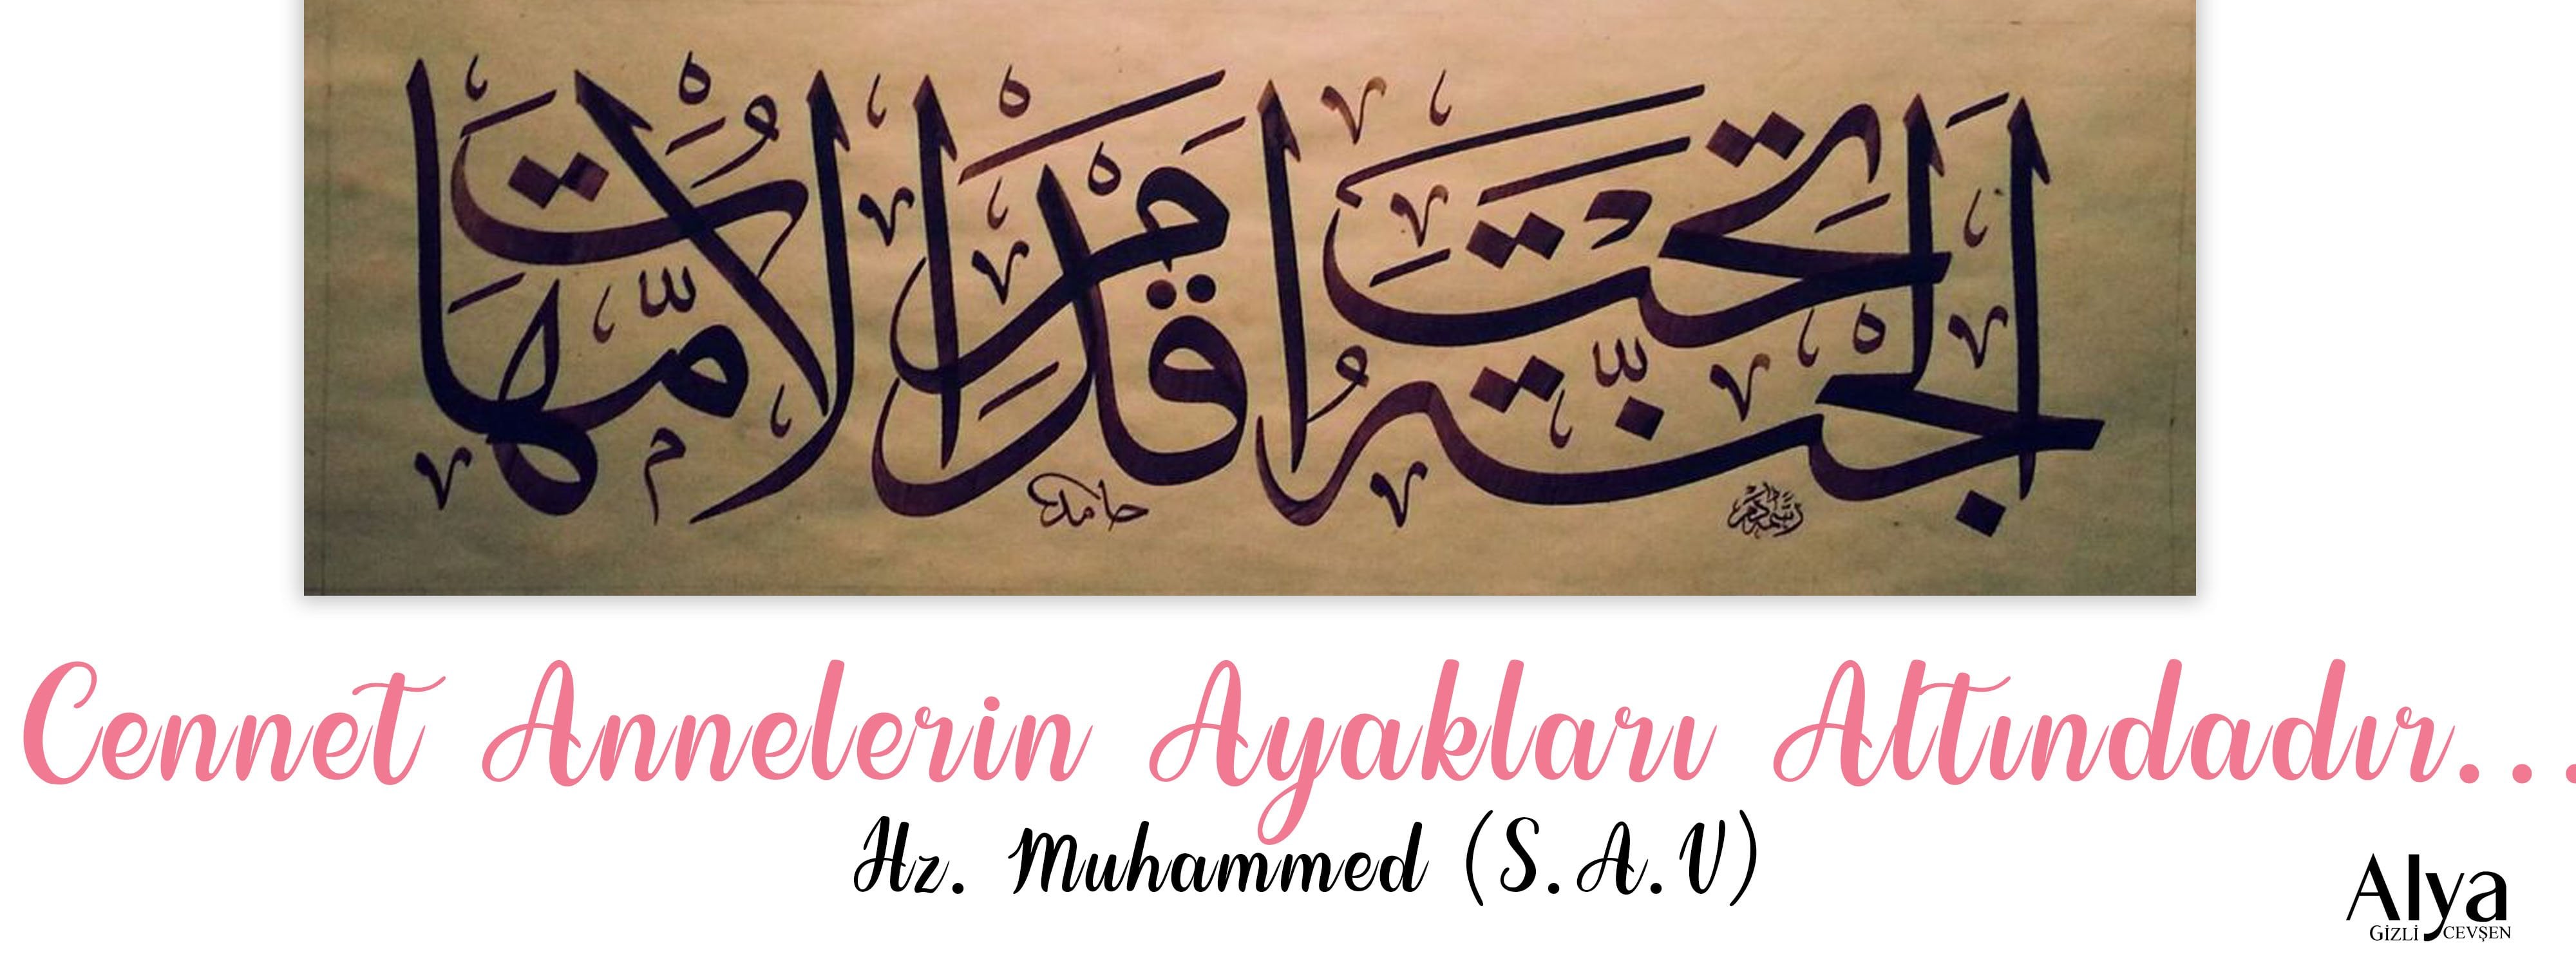 الجَنَّةُ تَحْتَ اَقْدَامِ الْاُمَّهَاتِ
حامد
Cennet Annelerin Ayakları Altındadır...
Hz. Muhammed (S.A.V)
Alya
GİZLİ CEVŞEN